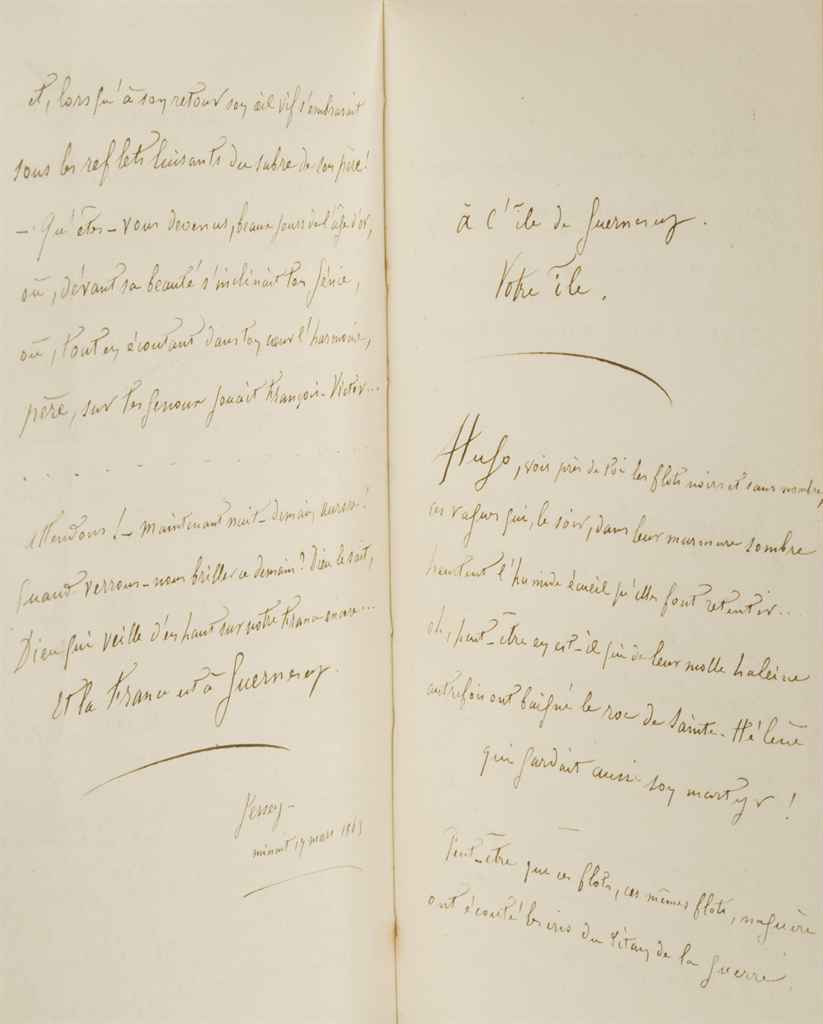 et, lorsqu'à son retour son œil vif s'embrasait
sous les reflets luisants du sabre de son père!
— Qu'êtes-vous devenus, beaux jours de l'âge d'or,
où, devant sa beauté s'inclinait ton génie,
où, tout en écoutant dans ton cœur l'harmonie,
père, sur tes genoux jouait François-Victor...
Attendons! — maintenant nuit — demain, aurore!
Quand verrons-nous briller ce demain? Dieu le sait,
Dieu qui veille d'en haut sur notre France encore...
Et la France est à Guernesey.
Jersey —
minuit 17 mars 1863
à l'île de Guernesey.
Votre île.
Hugo, vois près de toi les flots noirs et sans nombre,
ces vagues qui, le soir, dans leur murmure sombre
heurtent l'humide écueil qu'elles font retentir...
oh, peut-être en est-il qui de leur molle haleine
autrefois ont baigné le roc de Sainte-Hélène
qui gardait aussi son martyr!
Peut-être que ces flots, ces mêmes flots, naguère
ont écouté les cris du titan de la guerre,